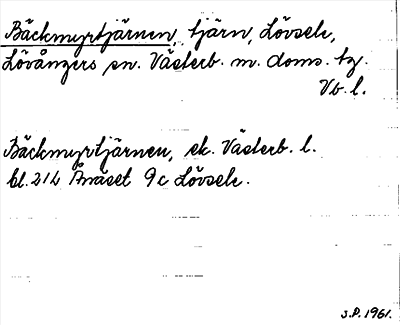 Bäckmyrtjärnen, tjärn, Lövsele,
Lövångers sn. Västerb. m. doms. tg.
Vb. l.
Bäckmyrtjärnen, ek. Västerb. l.
bl. 21L Ånäset 9c Lövsele.
S.P. 1961.